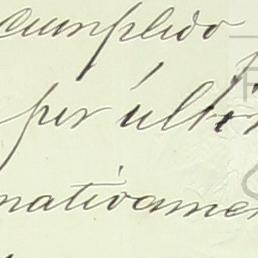 cumplido
por últi
nativamen